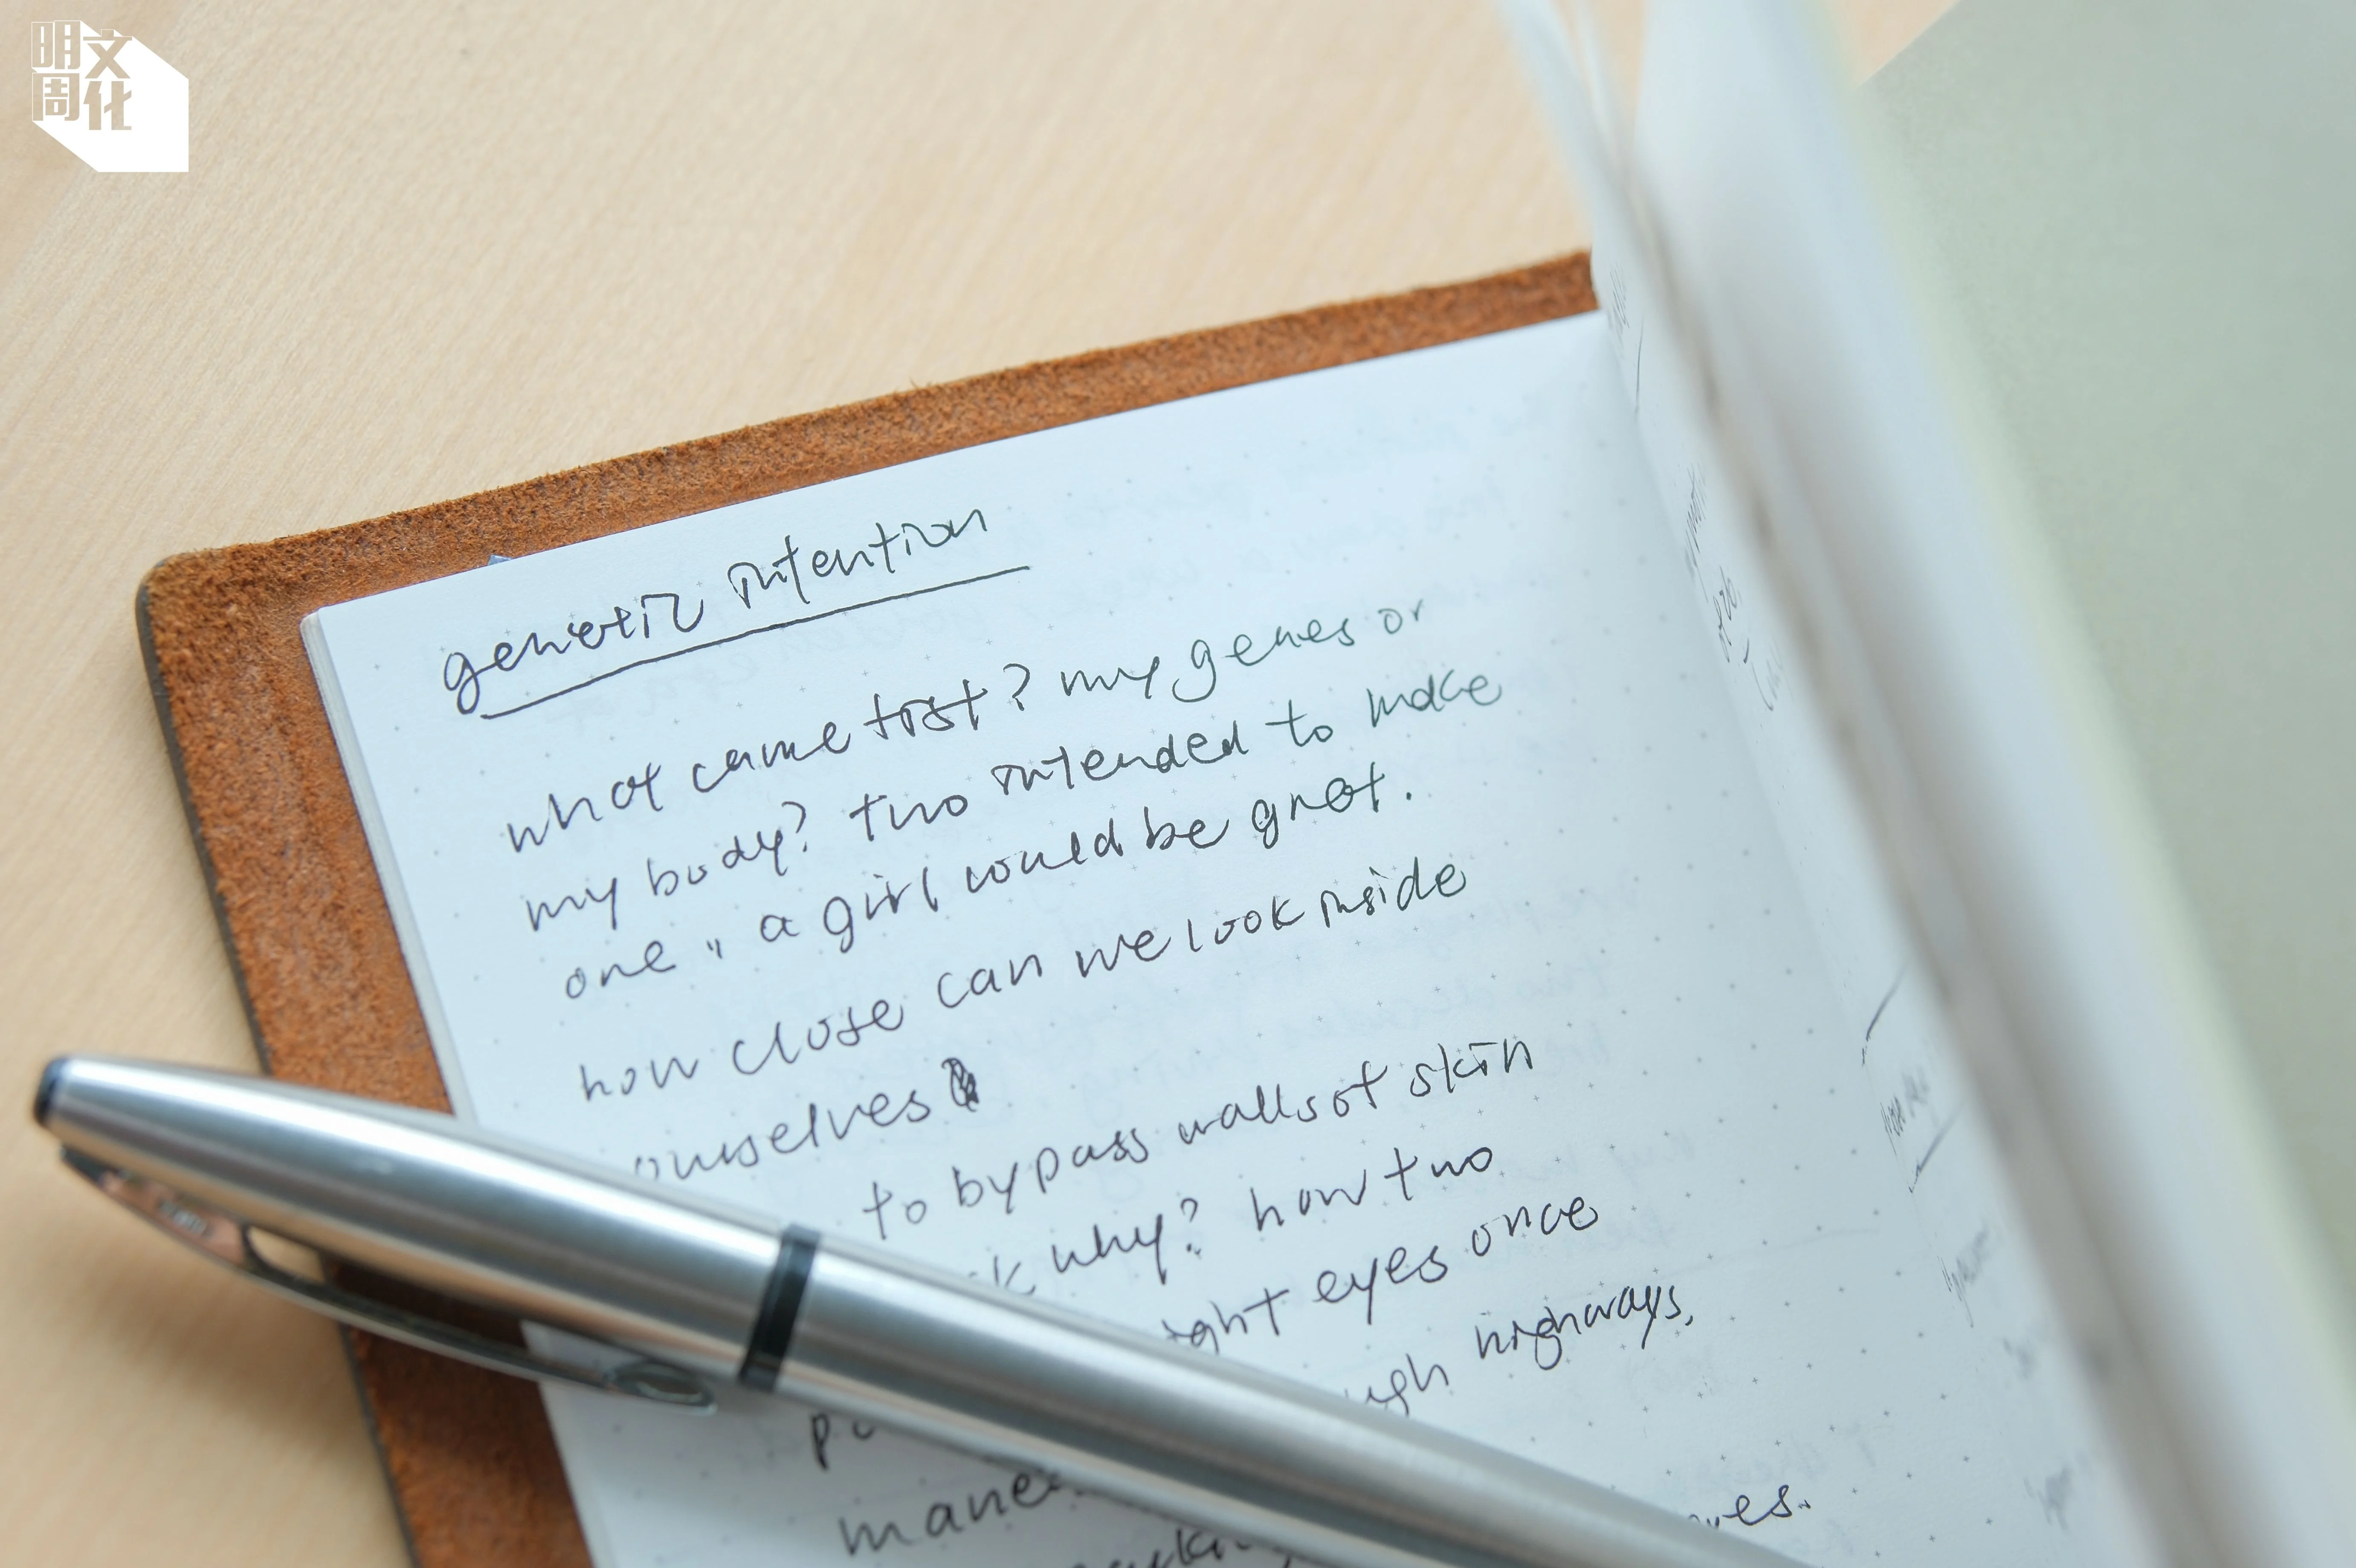 明文
周化
genetic intention
what came first? my genes or
my body? two intended to make
one, a girl would be great.
how close can we look inside
ourselves
to bypass walls of skin
why? how two
eyes once
highways,